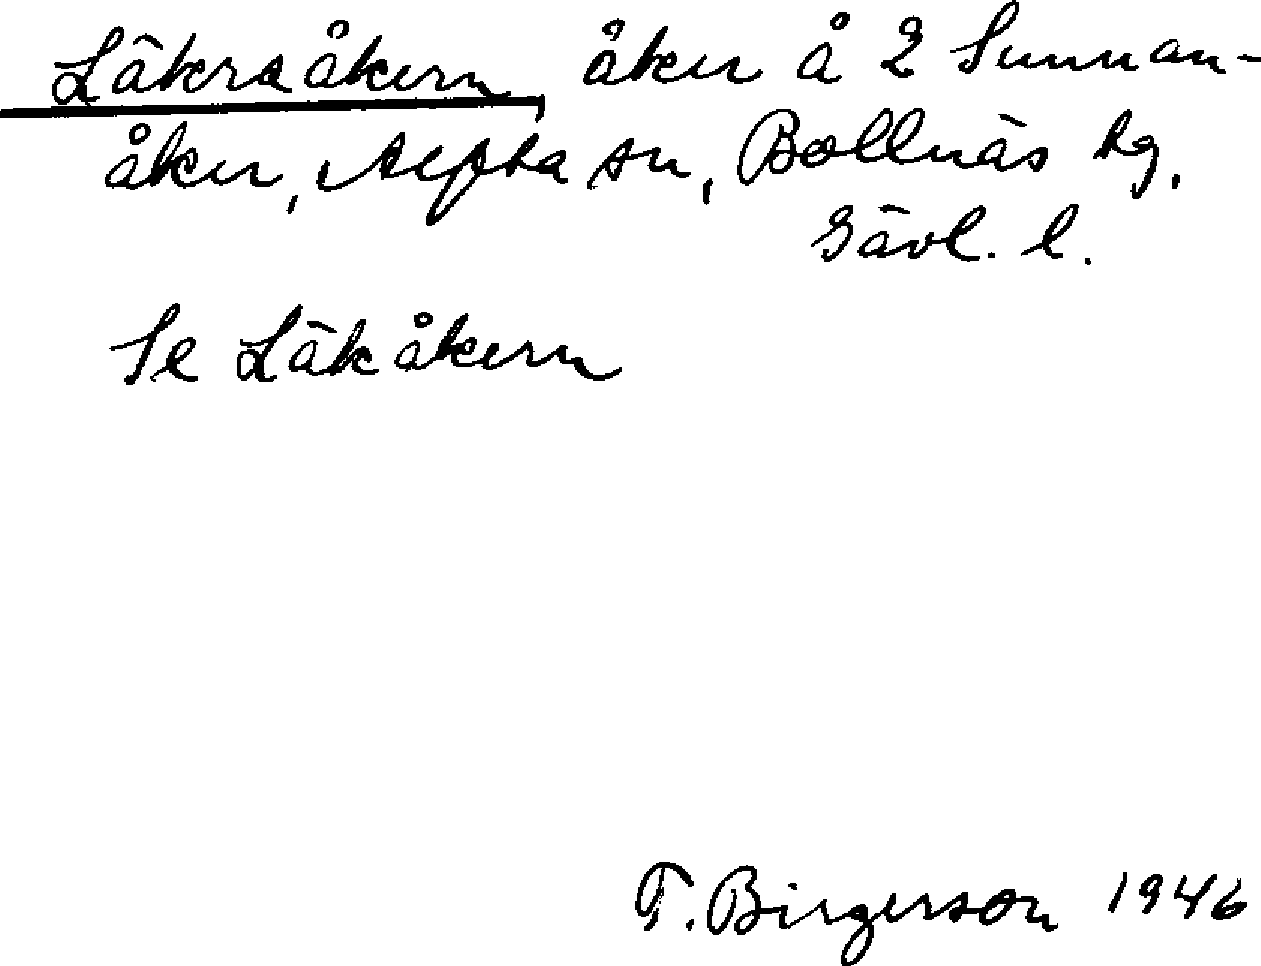 Läkraåkern, åker å 2 Sunnan-
åker, Alfta sn, Bollnäs tg,
Gävl. l.
Se Läkåkern
T. Birgerson 1946